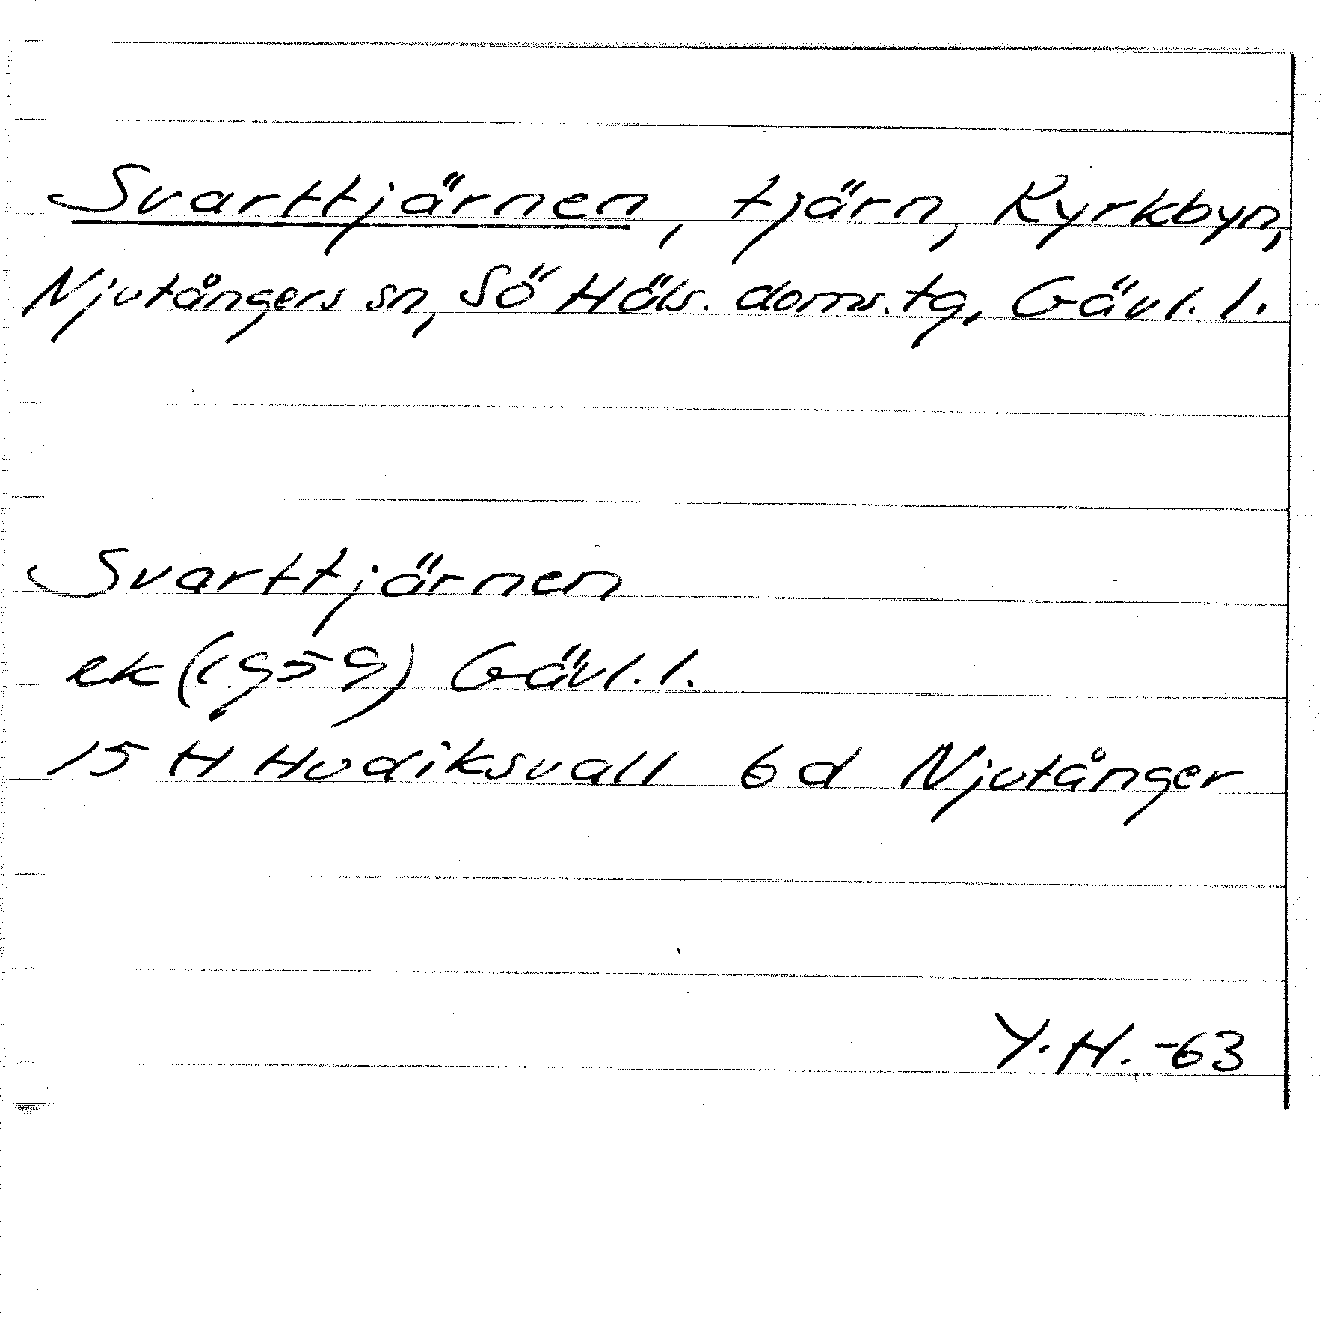 Svarttjärnen, tjärn, Kyrkbyn,
Njutångers sn, Sö Häls. doms. tg, Gävl. l.
Svarttjärnen
ek (1959) Gävl. l.
15 H Hudiksvall 6 d Njutånger
Y. H. -63